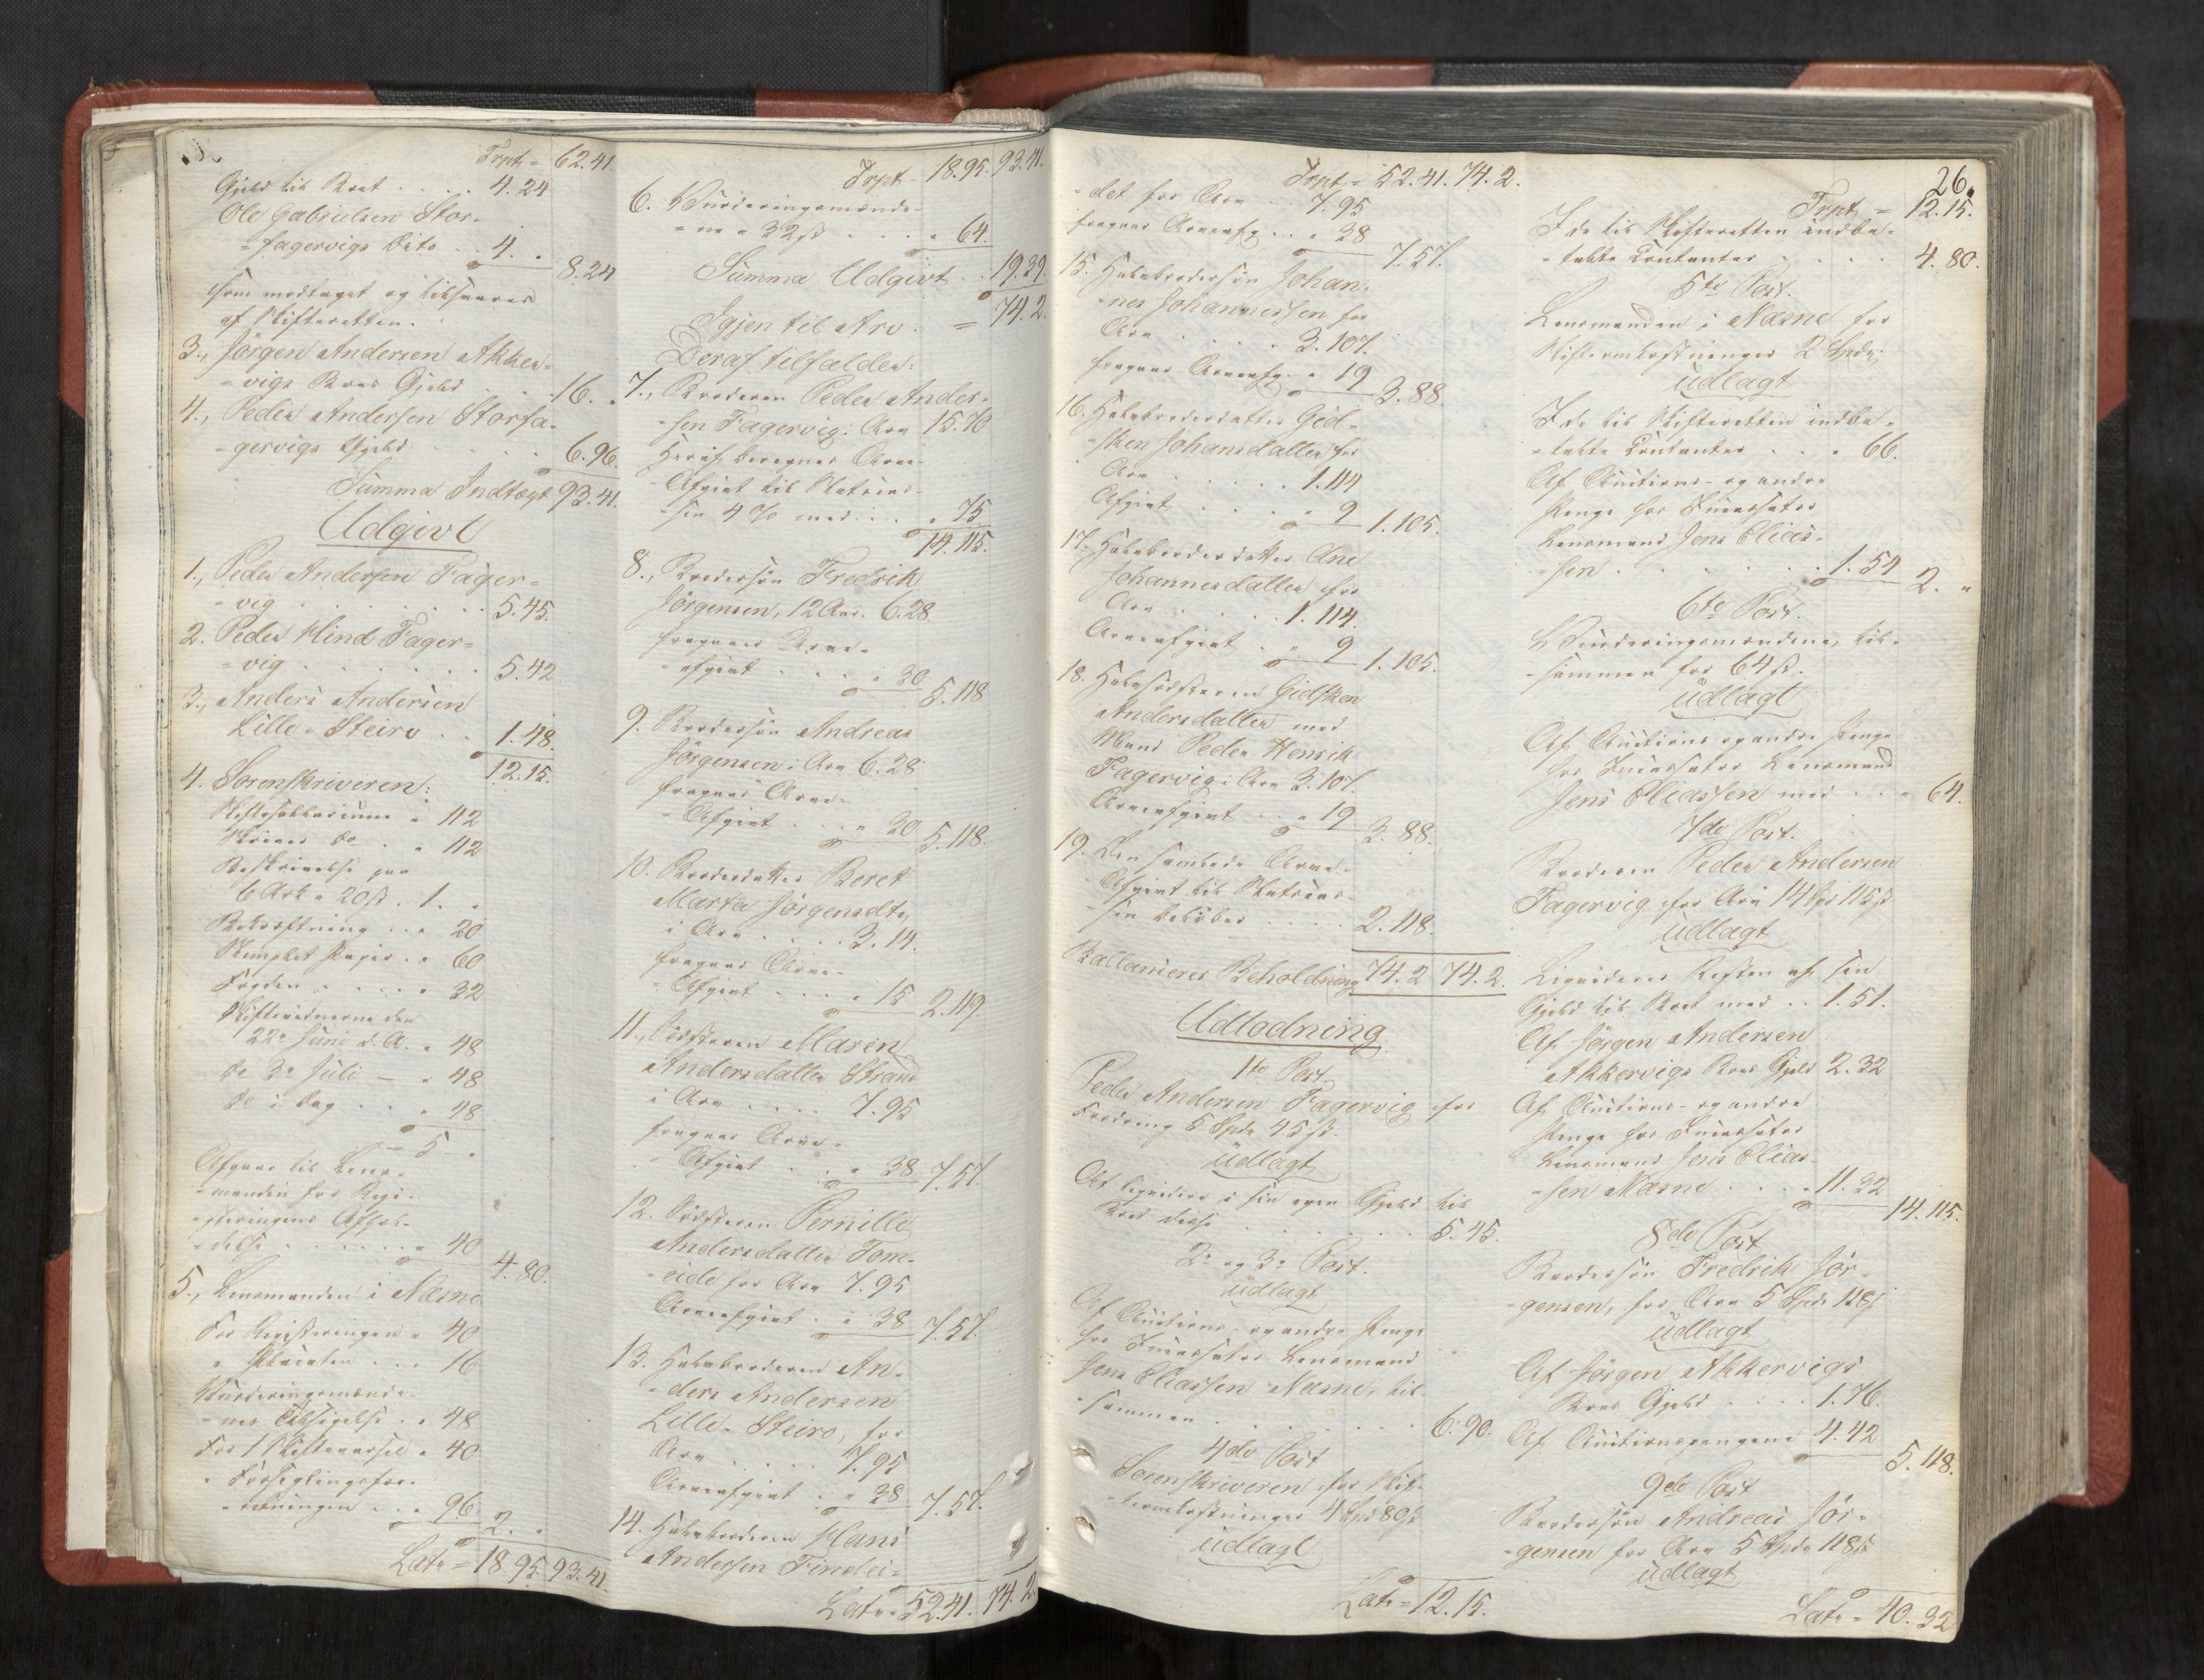 Trpt = 62.41.
Gjeld til Boet . . . . 4.24
Ole Gabrielsen Stor-
= fagervigs Dito . . 4. „
8.24
som modtaget og tilsvares
af Skifteretten.
3., Jörgen Andersen Akker-
= vigs Boes Gjeld . . . 16. „
4., Peder Andersen Storfa-
= gervigs Gjeld . . . . 6.96.
Summa Indtægt 93.41.
Udgivt
1., Peder Andersen Fager-
= vig . . . . . . . 5.45.
2. Peder Hind Fager=
= vig . . . . . . 5.42
3., Anders Andersen
Lille-Steiro . . 1.48.
12.15.
4. Sorenskriveren:
Skiftesallarium „ 112
Skriver do . „ 112
Beskrivelse paa
6 Ark a 20 ß . 1. „
Bekræftning . . „ 20
Stemplet Papir . „ 60
Fogden . . . . „ 32
Skiftevidnerne den
22de Juni d. A. „ 48
do 3de Juli — „ 48
do i Dag . . . „ 48
— 5 „
Afgaar til Lens-
= manden for Regi-
= streringens Afhol-
= delse . . . . . „ 40
4.80.
5., Lensmanden i Næsne
For Registreringen „ 40
„ Placaten . . . 16
Vurderingsmænde-
= nes Tilsigelse . „ 48
For 1 Skiftevarsel „ 40
„ Forseglingsfor-
= retningen . . „ 96.
2. „
Latr = 18.95. 93.41.
Trpt = 18.95. 93.41.
6. Vurderingsmænde-
= ne a 32 ß . . . . „ 64.
Summa Udgivt . . 19.39.
Igjen til Arv . = 74.2.
Deraf tilfalder:
7., Broderen Peder Ander-
= sen Fagervig: Arv 15.70
Heraf beregnes Arve-
= Afgivt til Statscas-
= sen 4 % med . . . „ 75
14.115.
8., Brodersön Fredrik
Jörgensen, 12 Aar. 6.28
fragaaer Arve-
= afgivt . . . . „ 30
5.118
9. Brodersön Andreas
Jörgensen: Arv 6.28
fragaaer Arve-
= Afgivt . . . „ 30
5.118.
10. Broderdatter Beret
Marta Jörgensdtr,
i Arv . . . . 3.14.
fragaaer Arve-
= Afgivt . . . . „ 15
2.119.
11., Södsteren Maren
Andersdatter Strand
i Arv . . . . 7.95
fragaaer Arve-
= Afgivt . . . „ 38
7.57.
12. Södsteren Pernille
Andersdatter Tom-
= eide for Arv 7.95
Arveafgivt . „ 38
7.57.
13. Halvbroderen An-
= ders Andersen
Lille-Steiro, for
Arv . . . . . 7.95
Arveafgivt . „ 38
7.57.
14. Halvbroderen Hans
Andersen Findei-
Latr = 52.41. 74.2.
Trpt = 52.41. 74.2.
= det for Arv . . 7.95
fragaaer Arveafg. . . „ 38
7.57.
15. Halvbrodersön Johan-
= nes Johannessen for
Arv . . . . . 3.107.
fragaaer Arveafg. „ 19
3.88.
16. Halvbroderdatter Gid-
= sken Johansdatter for
Arv . . . . . . 1.114
Afgivt . . . . „ 9
1.105.
17. Halvbroderdatter Ane
Johannesdatter for
Arv . . . . . 1.114.
Arveafgivt . „ 9
1.105.
18. Halvsödsteren Gidsken
Andersdatter med
Mand Peder Henrik
Fagervig: Arv 3.107.
Arveafgivt . . „ 19
3.88.
19. Den samlede Arve-
= Afgivt til Statscas-
= sen belöber . . . 2.118.
Ballancerer Beholdning 74.2 74.2.
Udlodning
1te Post.
Peder Andersen Fagervig for
Fordring 5 Spdr 45 ß.
Udlagt
At liquidere i sin egen Gjeld til
Boet disse . . . . . . . 5.45.
2de og 3de Post.
Udlagt
Af Auctions- og andre Penge
hos Incassator Lensmand
Jens Eliassen Næsne, til-
= sammen . . . . . . . 6.90.
4de Post
Sorenskriveren for Skif-
= teomkostninger 4 Spdr 80 ß
Udlagt
Latr = 12.15.
26.
Trpt = 12.15.
I de til Skifteretten indbe-
= talte Contanter . . . . 4.80.
5te Post.
Lensmanden i Næsne for
Skifteomkostninger 2 Spdr.
Udlagt
I de til Skifteretten indbe-
= talte Contanter . . „ 66.
Af Auctions- og andre
Penge hos Incassator
Lensmand Jens Elias-
= sen . . . . . . . 1.54
2. „
6te Post.
Vurderingsmændene, til-
= sammen for 64 ß.
Udlagt
Af Auctions og andre Penge
hos Incassator Lensmand
Jens Eliassen med . . „ 64.
7de Post.
Broderen Peder Andersen
Fagervig for Arv 14 Spd 115 ß
Udlagt
Liquiderer Resten af sin
Gjeld til Boet med . . 1.51.
Af Jörgen Andersen
Akkervigs Boes Gjeld 2.32
Af Auctions- og andre
Penge hos Incassator
Lensmand Jens Elias-
= sen Næsne . . . 11.32
14.115.
8de Post
Brodersön Fredrik Jör-
= gensen, for Arv 5 Spdr 118 ß
Udlagt
Af Jörgen Akkervigs
Boes Gjeld . . . . 1.76.
Af Auctionspengene 4.42
5.118.
9de Post
Brodersön Andreas Jör-
= gensen for Arv 5 Spdr 118 ß
Udlagt
Latr = 40.32